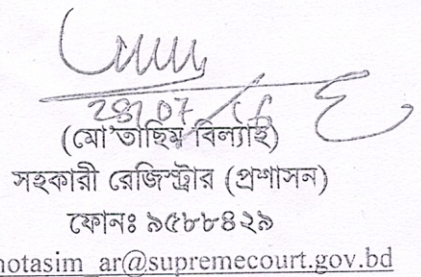 (মো তাছিম বিল্যাহ)
সহকারী রেজিস্ট্রার (প্রশাসন)
ফোনঃ ৯৫৮৮৪২৯
notasim_ar@supremecourt.gov.bd